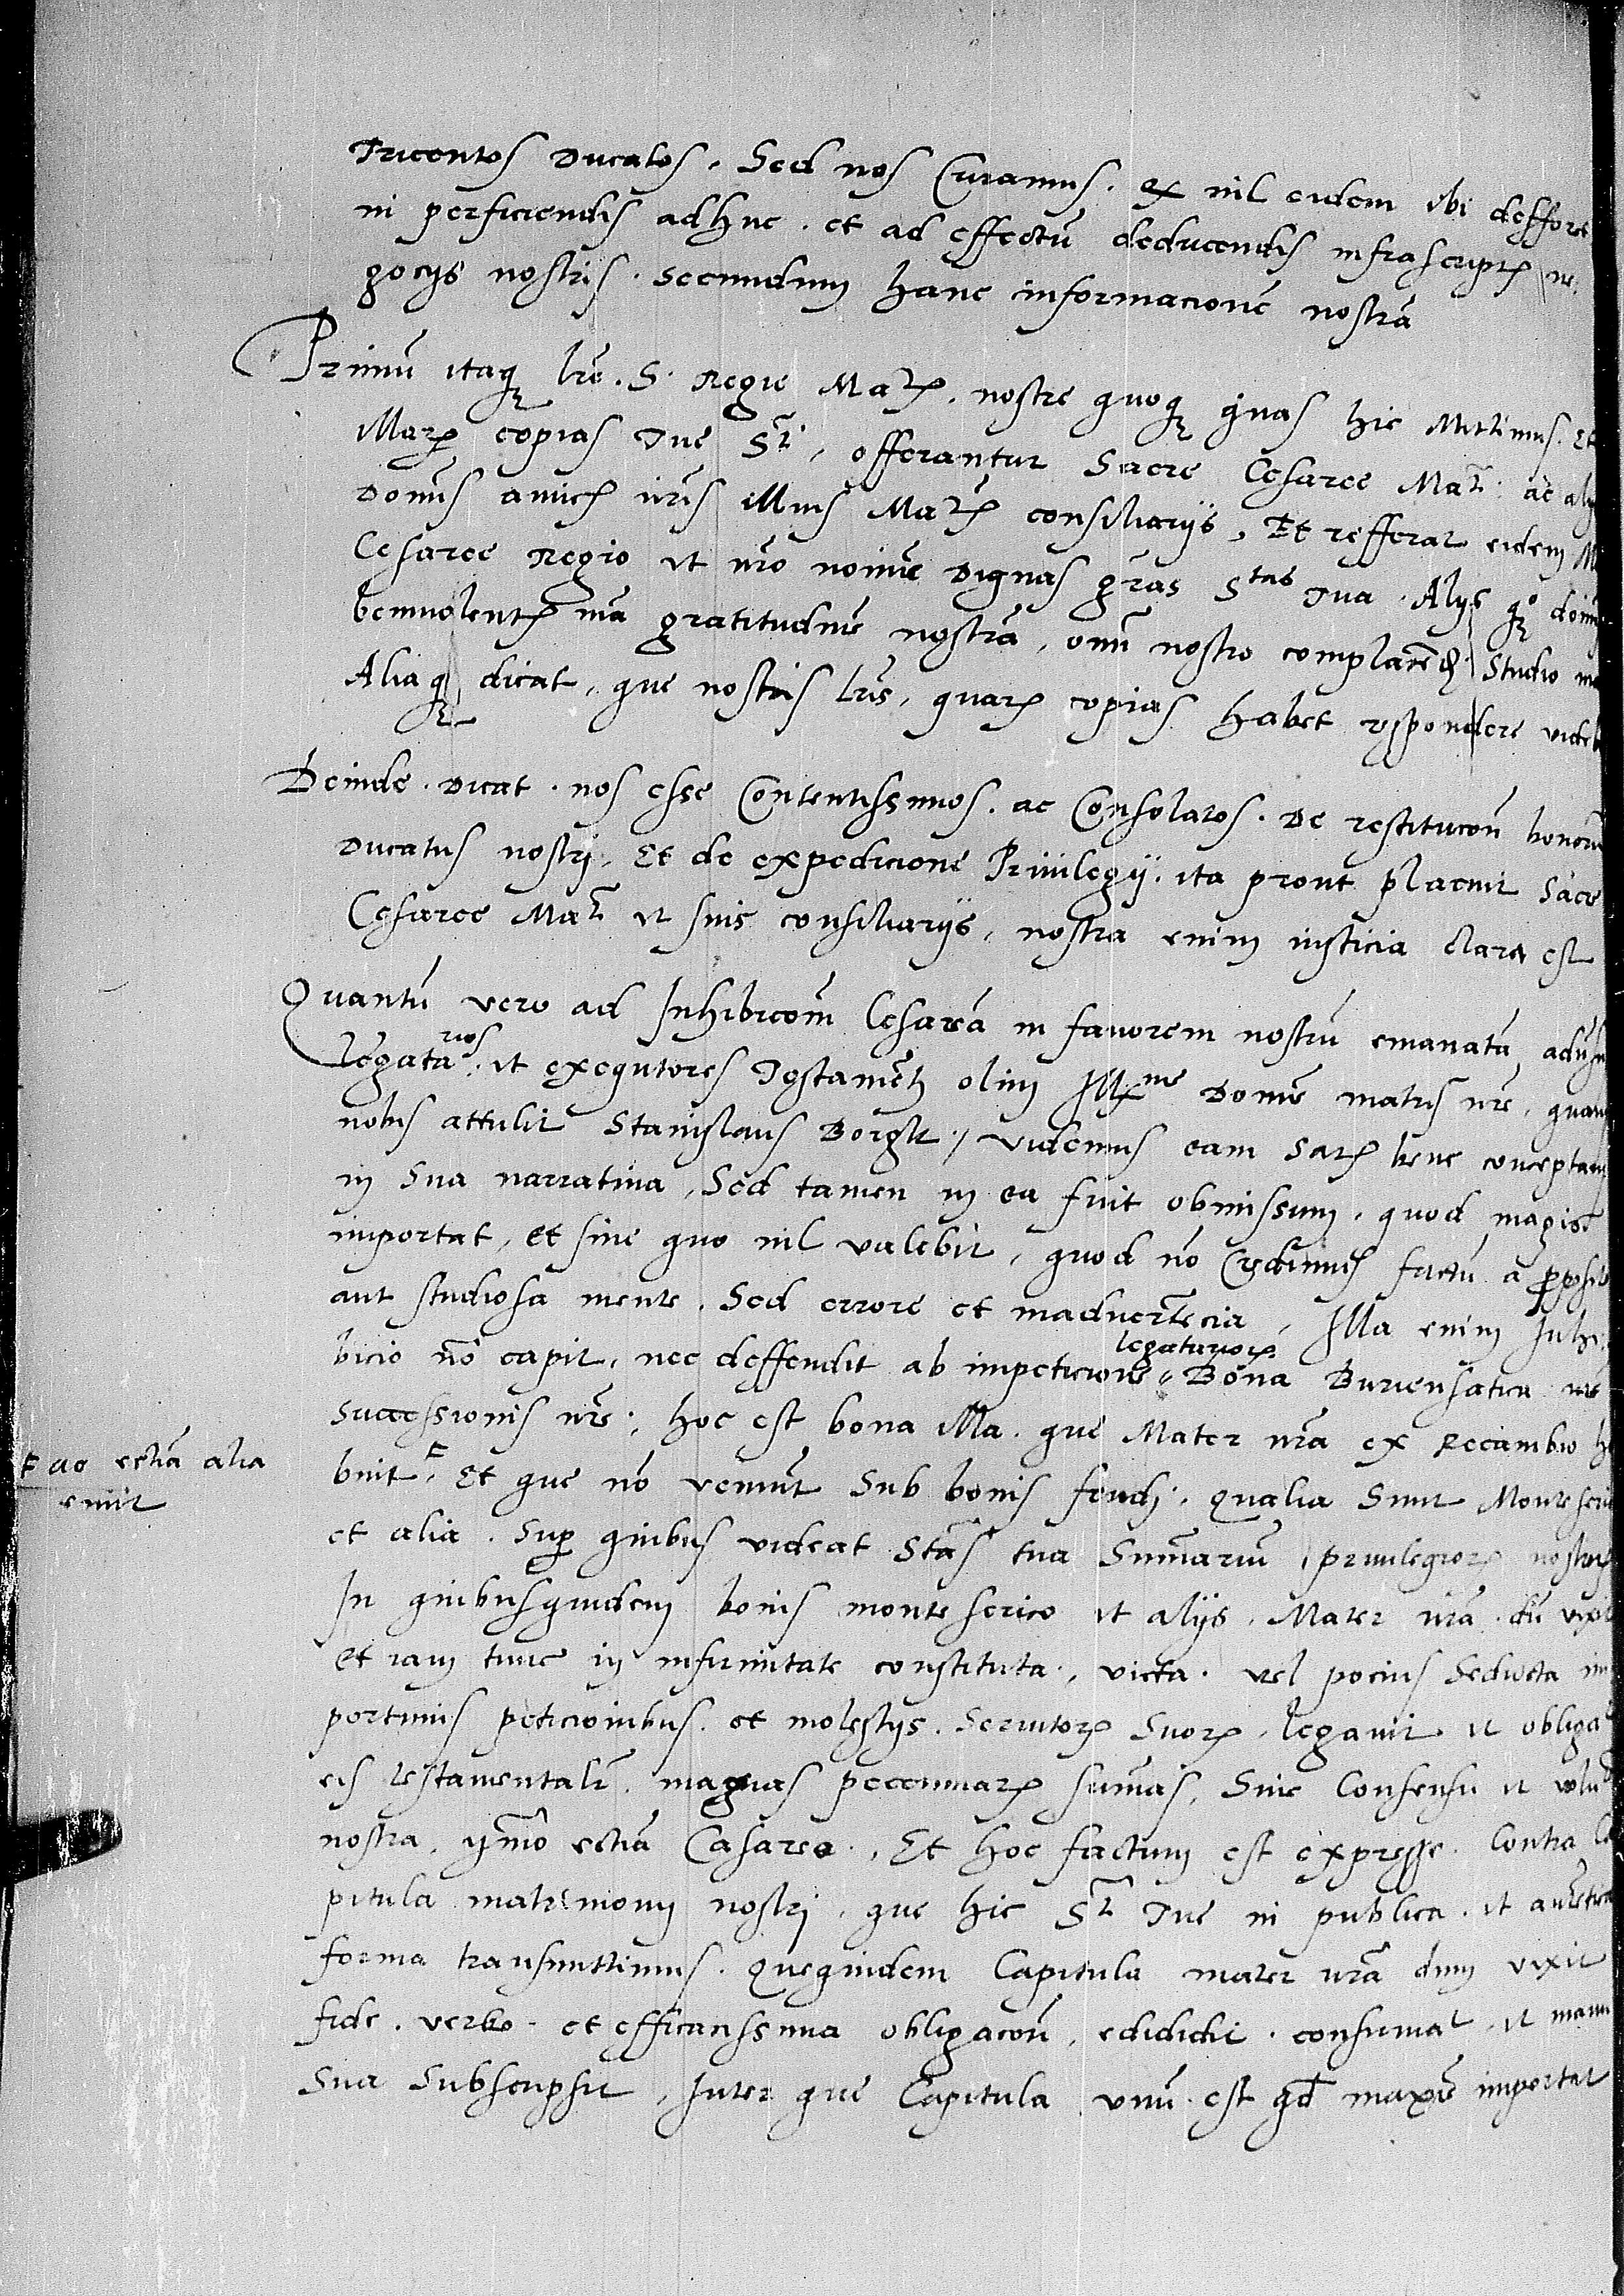 Tricentos Ducatos. Sed nos Curamus. ex nil eidem ibi deffore
in perficiendis adhuc. et ad effectũ deducendis infrascript ne
gocys nostris. secundum hanc informacionẽ nostrã
Primũ itaq lrẽ. S. Regie Mat. nostre quoq quas hic Mittimus. Et
Mar copias Tue St, offerantur Sacre Cesaree Mat: ac alys
Domĩs amicis nrĩs illius Mat consiliarijs, Et refferat eidem M
Cesaree Regio et nrõ noĩe Dignas grãs Stas Tua. Alijs q domĩ
beniuolent nrã gratitudinẽ nostrã, omĩ nostro complacẽd. Studio
Aliaq dicat, que nostris lrĩs, quar copias habet respondere videb
Deinde. Dicat. nos esse Contentissimos. ac Consolatos. De restitucõn bonorũ
Ducatus nostrj, Et de expedicione Priuilegij. ita prout placuit Sacre
Cesaree Mat et suis consiliarijs, nostra enim iusticia clara est
Quantũ vero ad Inhibicõm Cesareã in fauorem nostrum emanatã adũsu
rios
legata. et exequtores Testament olim Illme Domẽ matris nrẽ, quam
nobis attulit Stanislaus Borgk, videmus eam Sat bene conceptam
in Sua narratiua, Sed tamen in ea fuit obmissum, quod magis
importat, et sine quo nil valebit, quod nõ Credimus factũ a pposito
aut studiosa mente. Sed errore et inaduertẽcia, Illa enim Inhi
legatarior
bicio nõ capit, nec deffendit ab impeticione Bona Buriensatica
Successionis nrẽ: hoc est bona illa. que Mater nrã ex Recambio ha
buit F. Et que nõ veniunt Sub bonis feudj. qualia Sunt Monteseri
F ac eciã alia
emit
et alia. Sup quibus videat Stas tua Summariũ priuilegior nostror
In quibusquidem bonis monte serico et alijs. Mater nrã. dũ vixit
et iam tunc in infirmitate constituta, victa. vel pocius Seducta im
portunis peticionibus. et molestijs. Seruitor Suor, legauit et obliga
eis testamentalr. magnas pecuniar summas, Sine Consensu et volũt
nostra, ymo eciã Casarea. Et hoc factum est expresse. Contra Ca
pitula matrimonij nostrj. que hic St Tue in publica. et autẽtica
forma transmittimus. quequidem Capitula mater nrã dum vixit
fide. verbo. et efficacissima obligacõn, edididit. confirmat. et manu
Sua Subscripsit, Inter que Capitula vnũ. est qd maxĩe importat